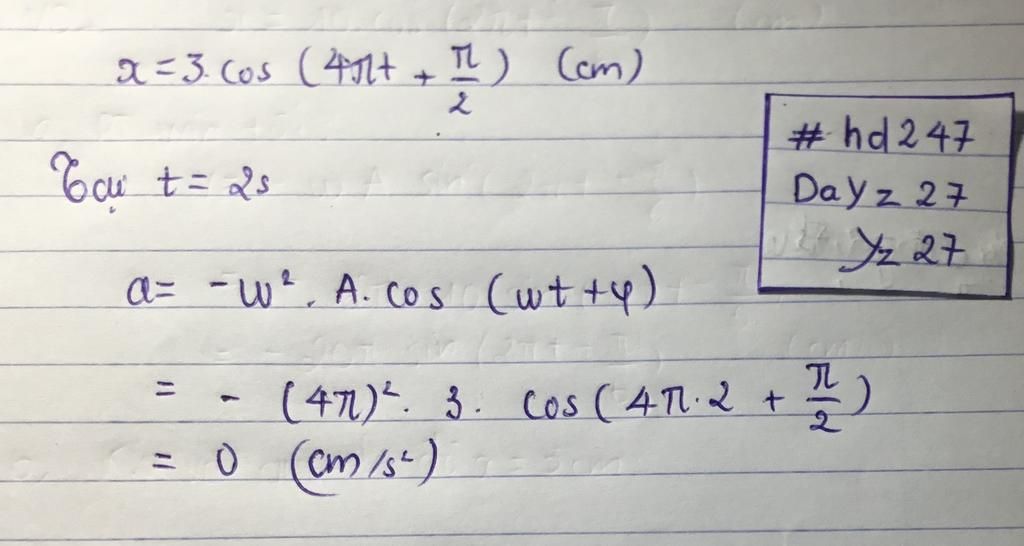 x = 3. cos (4πt + π/2) (cm)
Tại t = 2s
a = - ω². A. cos (ωt + φ)
= - (4π)². 3. cos (4π.2 + π/2)
= 0 (cm/s²)
# hd247
DaYz 27
Yz 27